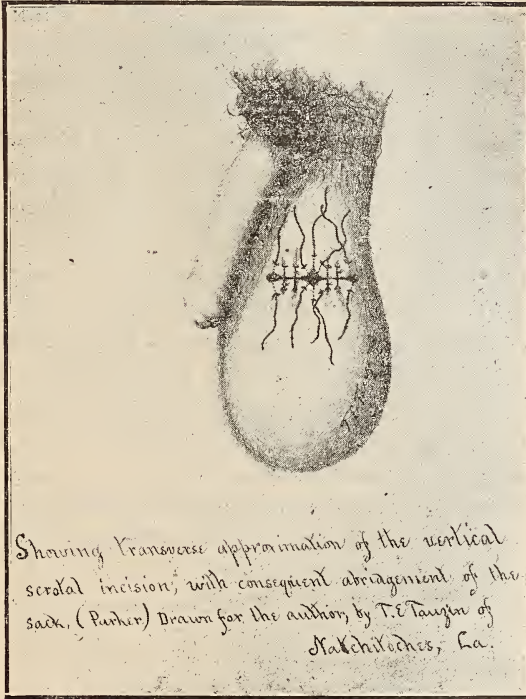 Showing transverse approximation of the vertical
scrotal incision, with consequent abridgement of the
sack, (Parker) Drawn for the author, by T. E. Tauzin of
Natchitoches, La.